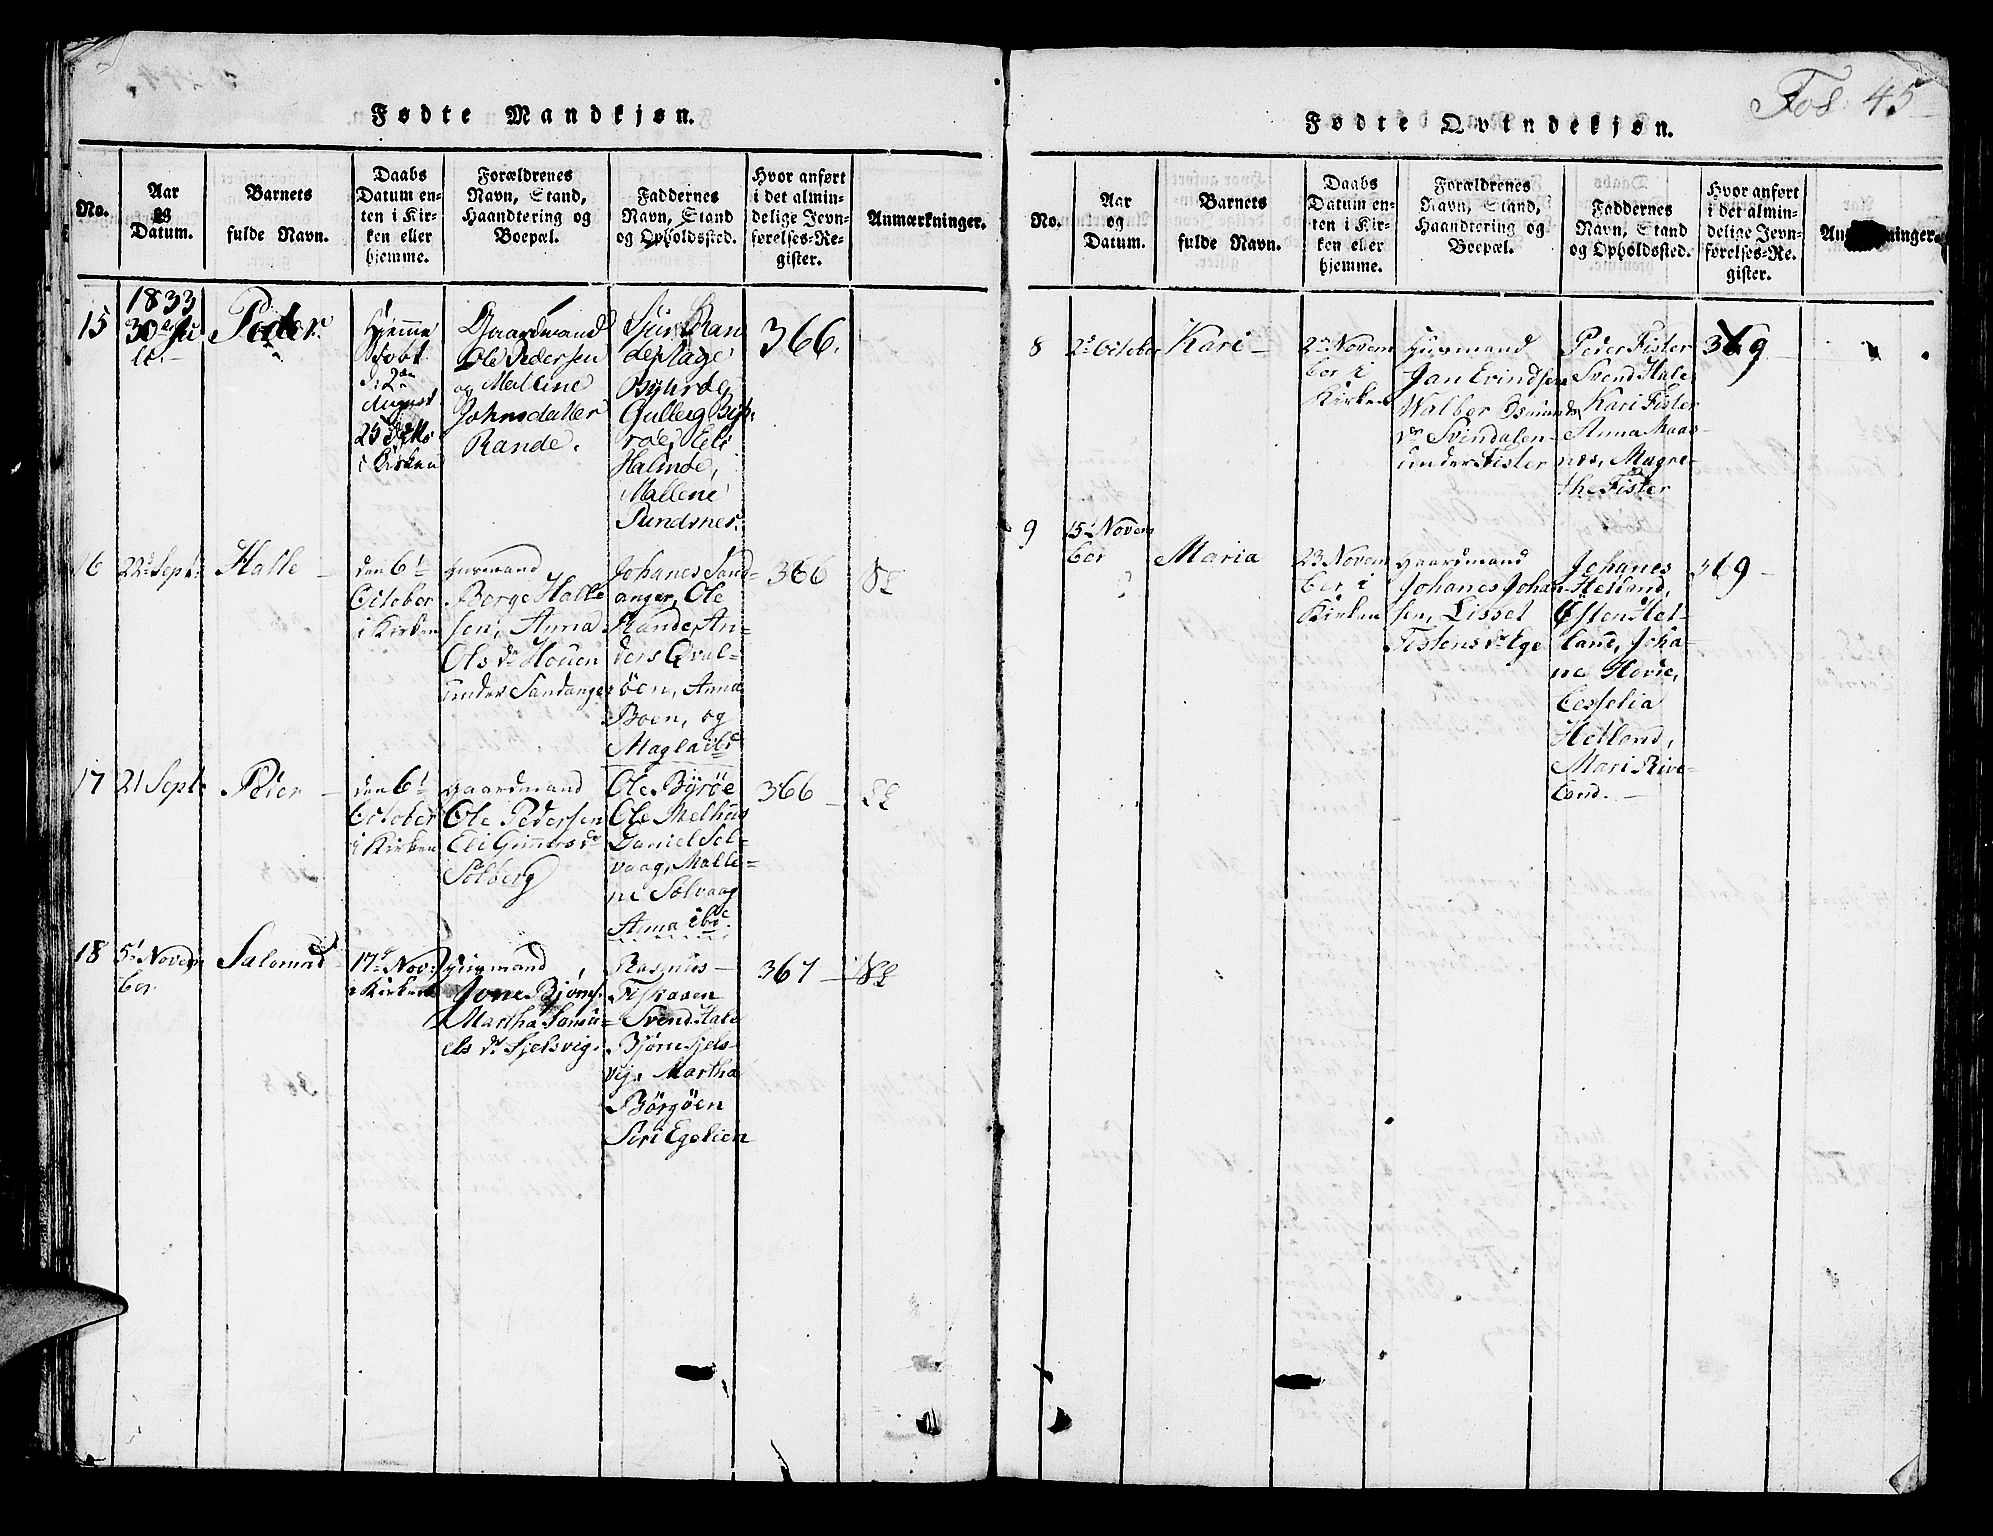 Fødte Mandkjøn.
No.
Aar
og
Datum.
Barnets
fulde Navn.
Daabs
Datum en-
ten i Kir-
ken eller
hjemme.
Forældrenes
Navn, Stand,
Haandtering og
Boepæl.
Faddernes
Navn, Stand
og Opholdssted.
Hvor anført
i det almin-
delige Jevn-
førelses-Re-
gister.
Anmærkninger.
1833
15
30
Peder
Hjemme
Døbt
d. 2
August
25
i Kirken
Gaardmand
Ole Pedersen
og Mallene
Johnsdatter
Rande.
Halnøe,
Mallene
Pundsnes.
366.
16
22 Sept:
Halle
den 6
October
i Kirken
Huusmand
Borge Halle
sen, Anna
Ols dr Houen
under Sandanger
Johanes Sand-
anger, Ole
Rande, An-
ders Qval-
øen, Anna
Boen, og
366
17
21 Sept.
Peder
den 6
October
i Kirken
gaardmand
Ole Pedersen
Eli Gunners dr
Solberg
Ole Byrøe
Ole Melhus
Daniel Sol-
vaag, Malle-
ne Solvaag
Anna ibd.
366
18
5 Novem
ber
Salomed
17 Nov:
i Kirken
Huusmand
Jone Bjørns.
Martha Samu-
els dr Fjelsvig.
Rasmus
Svend Hale
Bjørn Fjels-
vig, Martha
Børgøen
Siri Egelien
367
Fol. 45
Fødte Qvindekjøn.
No.
Aar
og
Datum.
Barnets
fulde Navn.
Daabs
Datum en-
ten i Kir-
ken eller
hjemme.
Forældrenes
Navn, Stand,
Haandtering og
Boepæl.
Faddernes
Navn, Stand
og Opholdssted.
Hvor anført
i det almin-
delige Jevn-
førelses-Re-
gister.
8
2 October
Kari
2 Novem
ber i
Kirken
Huusmand
Jan Evindsen
Walbor Osmunds
dr Svindalen
under Fister
Peder Fister
Svend Hale
Kari Fister
Anna Maas-
nes, Magre-
the Fister
369
9
15 Novem
ber
Maria
23 Novem
ber i
Kirken
gaardmand
Johanes Johan-
sen, Lisbet
Tistens dr Ege
Johanes
Helland,
Østen Hel-
land, Joha-
ne Hovde,
Cesselia
Helland,
Mari Rive-
land.
369